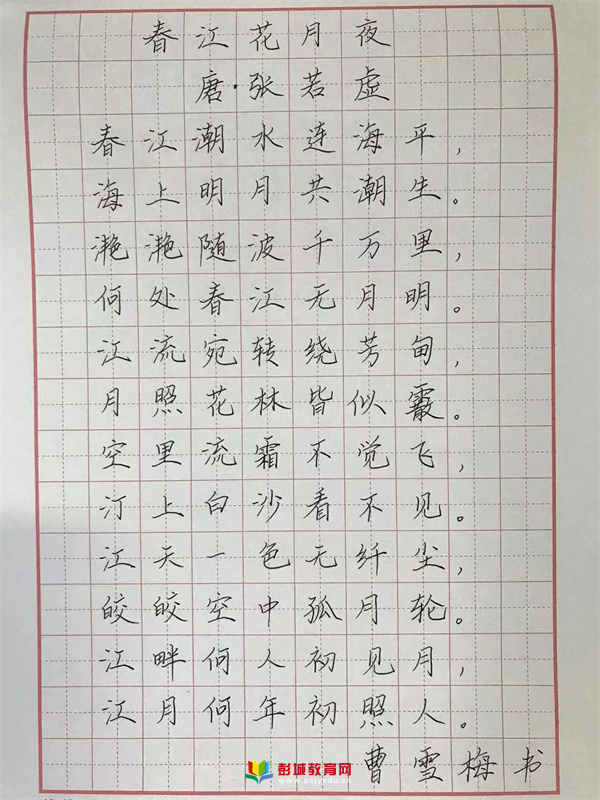 春江花月夜
唐·张若虚
春江潮水连海平，
海上明月共潮生。
滟滟随波千万里，
何处春江无月明。
江流宛转绕芳甸，
月照花林皆似霰。
空里流霜不觉飞，
汀上白沙看不见。
江天一色无纤尘，
皎皎空中孤月轮。
江畔何人初见月，
江月何年初照人。
曹雪梅书
彭城教育网
www.pcjyedu.cn